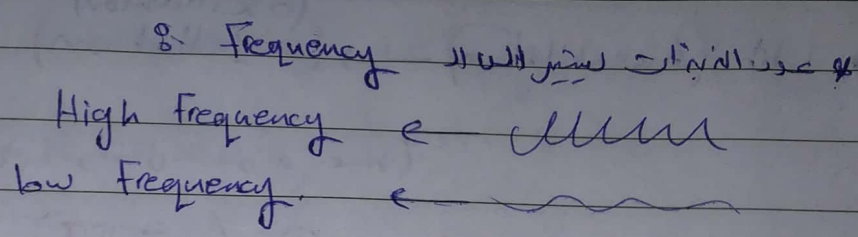 8. Frequency عدد النبذات
High frequency ←
low frequency. ←